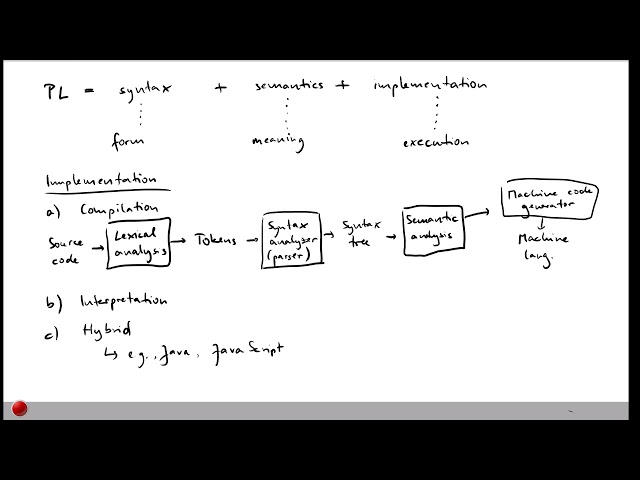 PL = syntax + semantics + implementation
form meaning execution
Implementation
a) Compilation
Source code → Lexical analysis → Tokens → Syntax analyzer (parser) → Syntax tree → Semantic analysis → Machine code generator
↓
Machine lang.
b) Interpretation
c) Hybrid
↳ e.g., Java, JavaScript